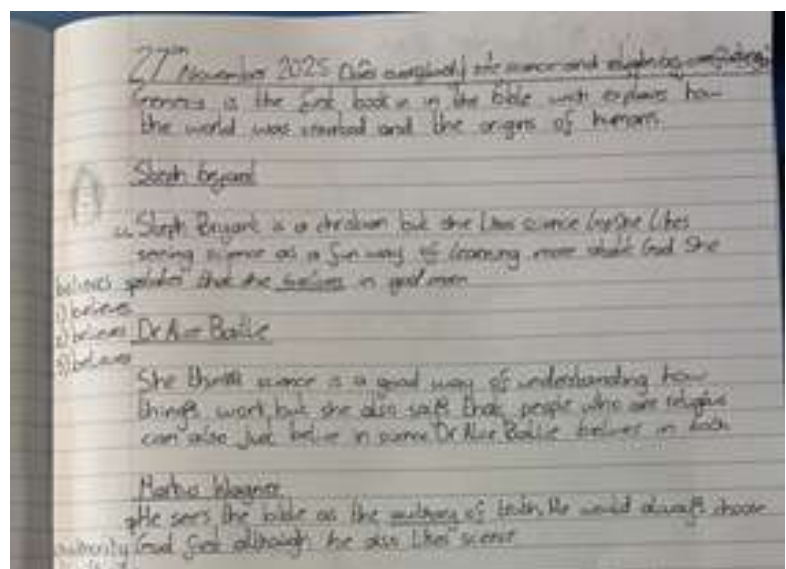 27 November 2025 Does everybody see science and religion as conflicting?
Genesis is the first book in in the bible wich explains how
the world was created and the origins of humans.
Steph Bryant
Steph Bryant is a christian but she likes science too she likes
seeing science as a fun way of learning more about God She
that she belives in god more
believes
1) believes
2) believes
3) believes
Dr Ailie Baillie
She thinks science is a good way of understanding how
things work but she also says that people who are religius
can also just belive in science Dr Baillie belives in both
Wagner
He sees the bible as the of truth. He would always choose
authority
God first although he also likes science